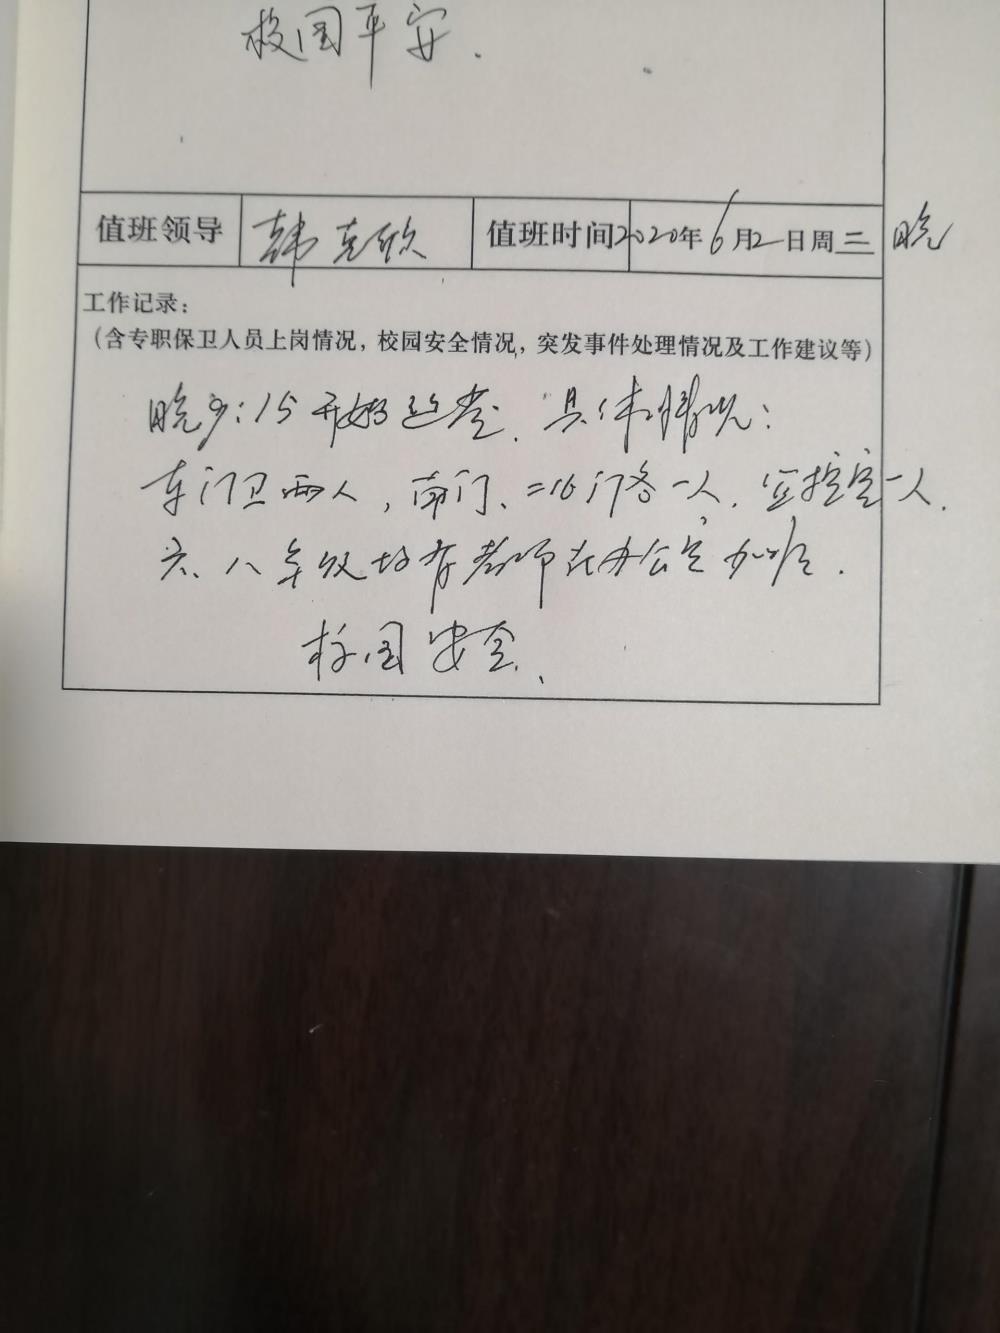 校园平安.
值班领导 韩克欣 值班时间 2020年6月2日周三 晚
工作记录：
（含专职保卫人员上岗情况，校园安全情况，突发事件处理情况及工作建议等）
晚 :15开始巡查. 具体情况：
东门卫两人，南门、 门各一人. 监控室一人.
六、八年级均有老师在办公室加班.
校园安全.